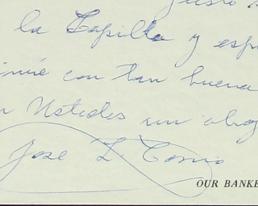 la Capilla y esp
con tan buena
Ustedes un abra
Jose L
OUR BANKE